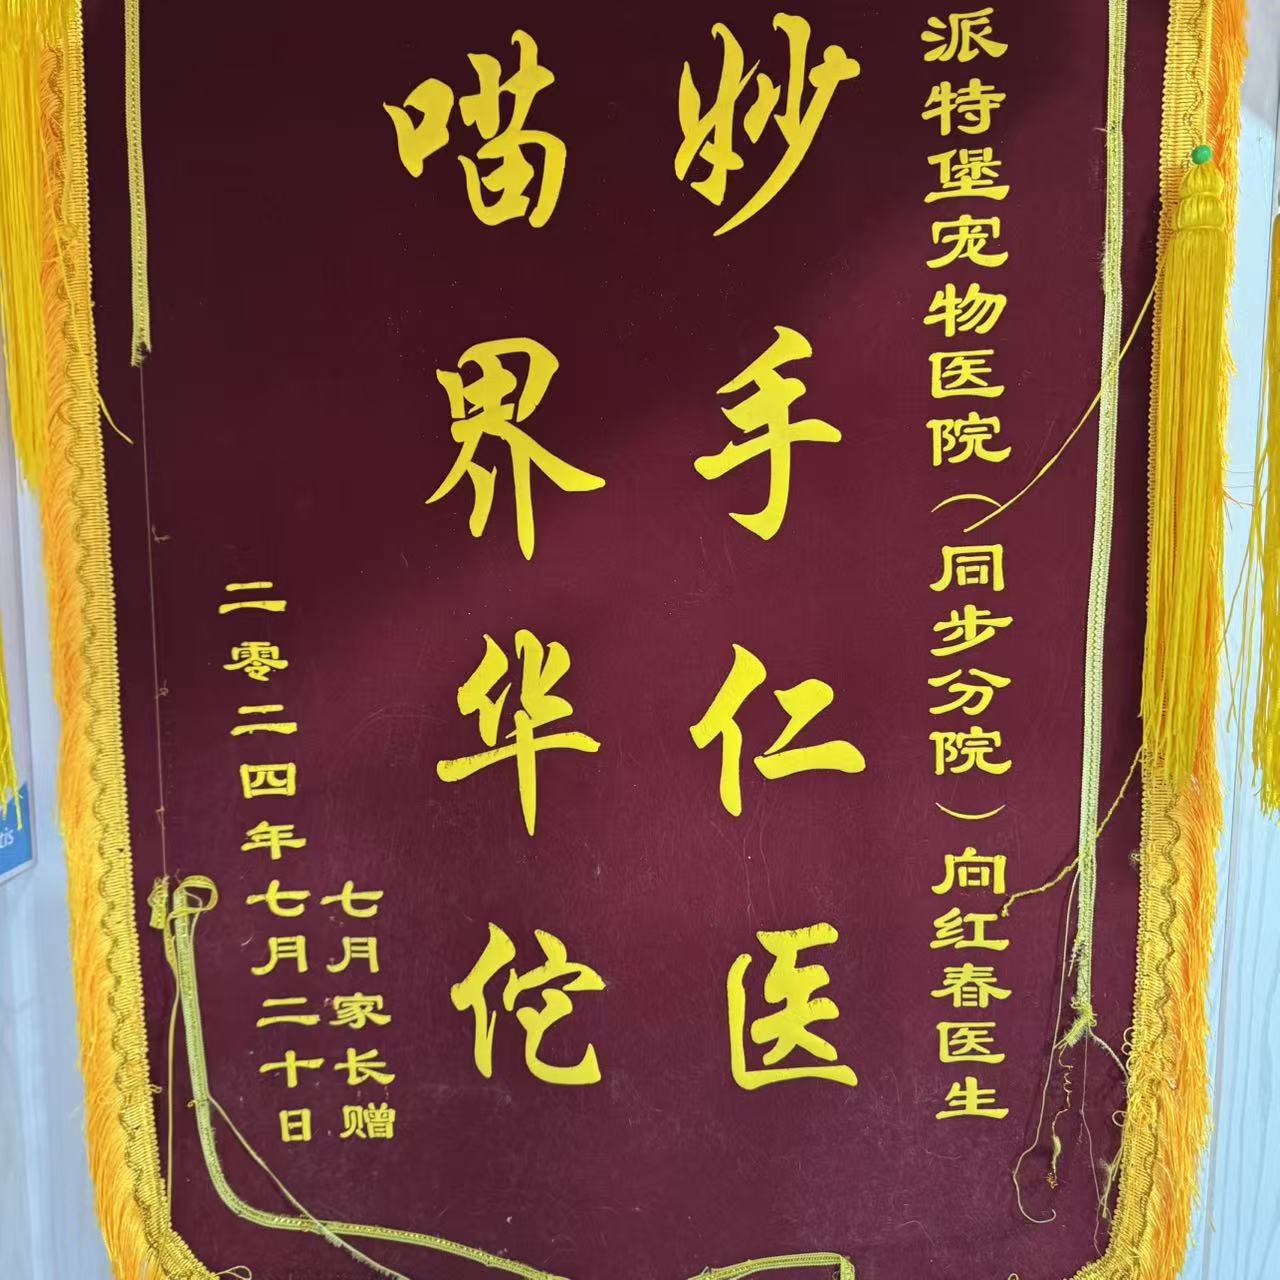 派特堡宠物医院（同步分院）向红春医生
妙手仁医
喵界华佗
七月家长赠
二零二四年七月二十日
tis